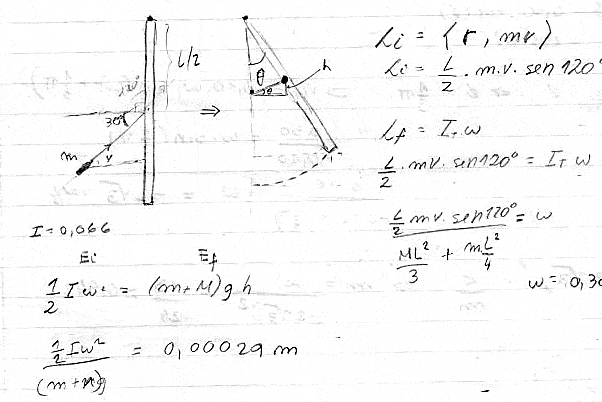 L/2
120°
30°
m
v
⇒
θ
h
Li = (r, mv)
Li = L/2 . m.v. sen 120°
Lf = I_T ω
L/2 . mv. sen 120° = I_T ω
L/2 mv. sen 120° / (ML²/3 + mL²/4) = ω
ω = 0,30
I = 0,066
Ei Ef
1/2 I ω² = (m+M) g h
1/2 I ω² / (m+M)g = 0,00029 m